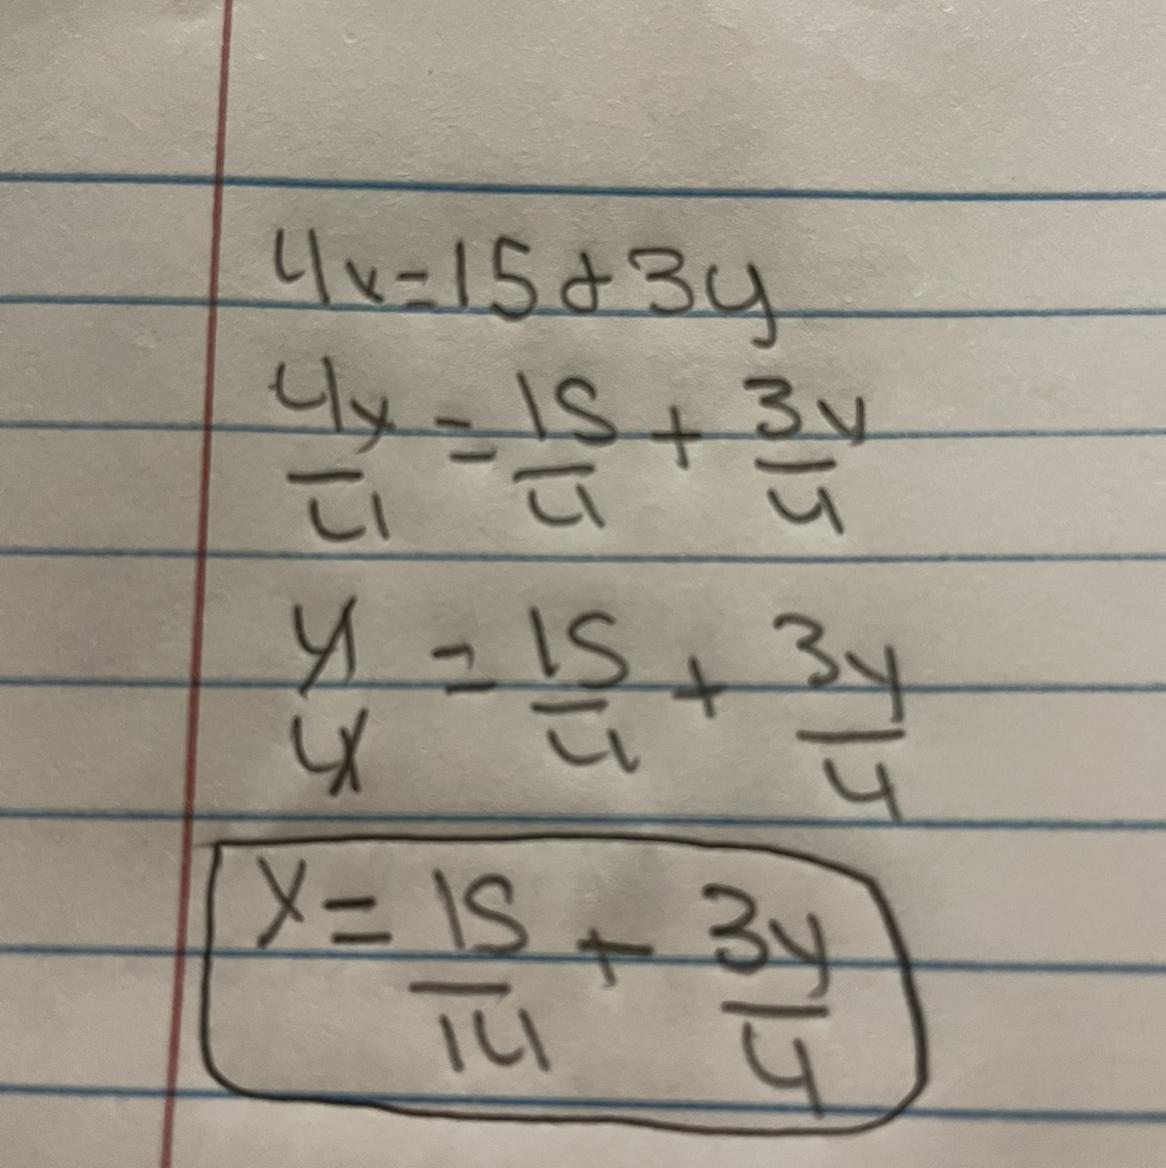 4x=15+3y
4x/4 = 15/4 + 3y/4
4/4 = 15/4 + 3y/4
x = 15/14 + 3y/4